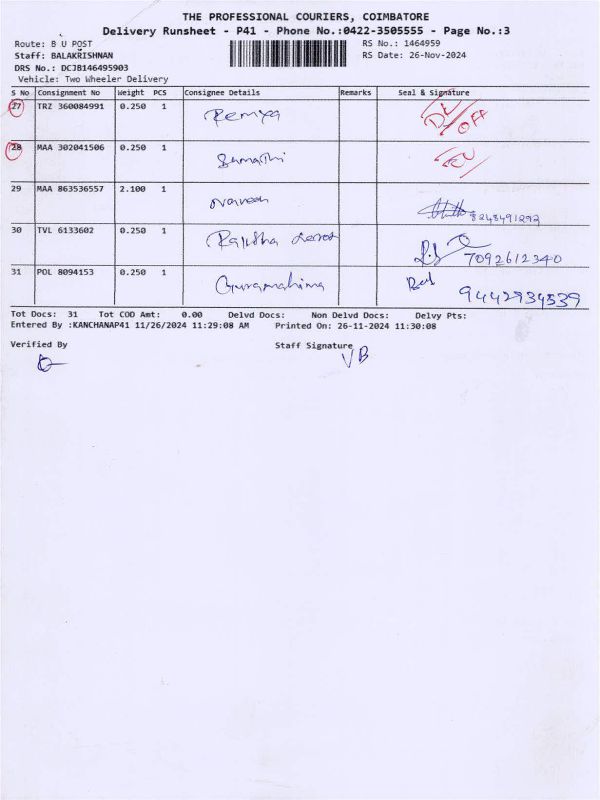 THE PROFESSIONAL COURIERS, COIMBATORE
Delivery Runsheet - P41 - Phone No.:0422-3505555 - Page No.:3
Route: B U POST RS No.: 1464959
Staff: BALAKRISHNAN RS Date: 26-Nov-2024
DRS No.: DCJB146495903
Vehicle: Two Wheeler Delivery
S No Consignment No Weight PCS Consignee Details Remarks Seal & Signature
27 TRZ 360084991 0.250 1 Remya
28 MAA 302041506 0.250 1 Sumathi
29 MAA 863536557 2.100 1 Naveen 8248491292
30 TVL 6133602 0.250 1 7092612340
31 POL 8094153 0.250 1 Gurumahima 9442934539
Tot Docs: 31 Tot COD Amt: 0.00 Delvd Docs: Non Delvd Docs: Delvy Pts:
Entered By :KANCHANAP41 11/26/2024 11:29:08 AM Printed On: 26-11-2024 11:30:08
Verified By Staff Signature
VB